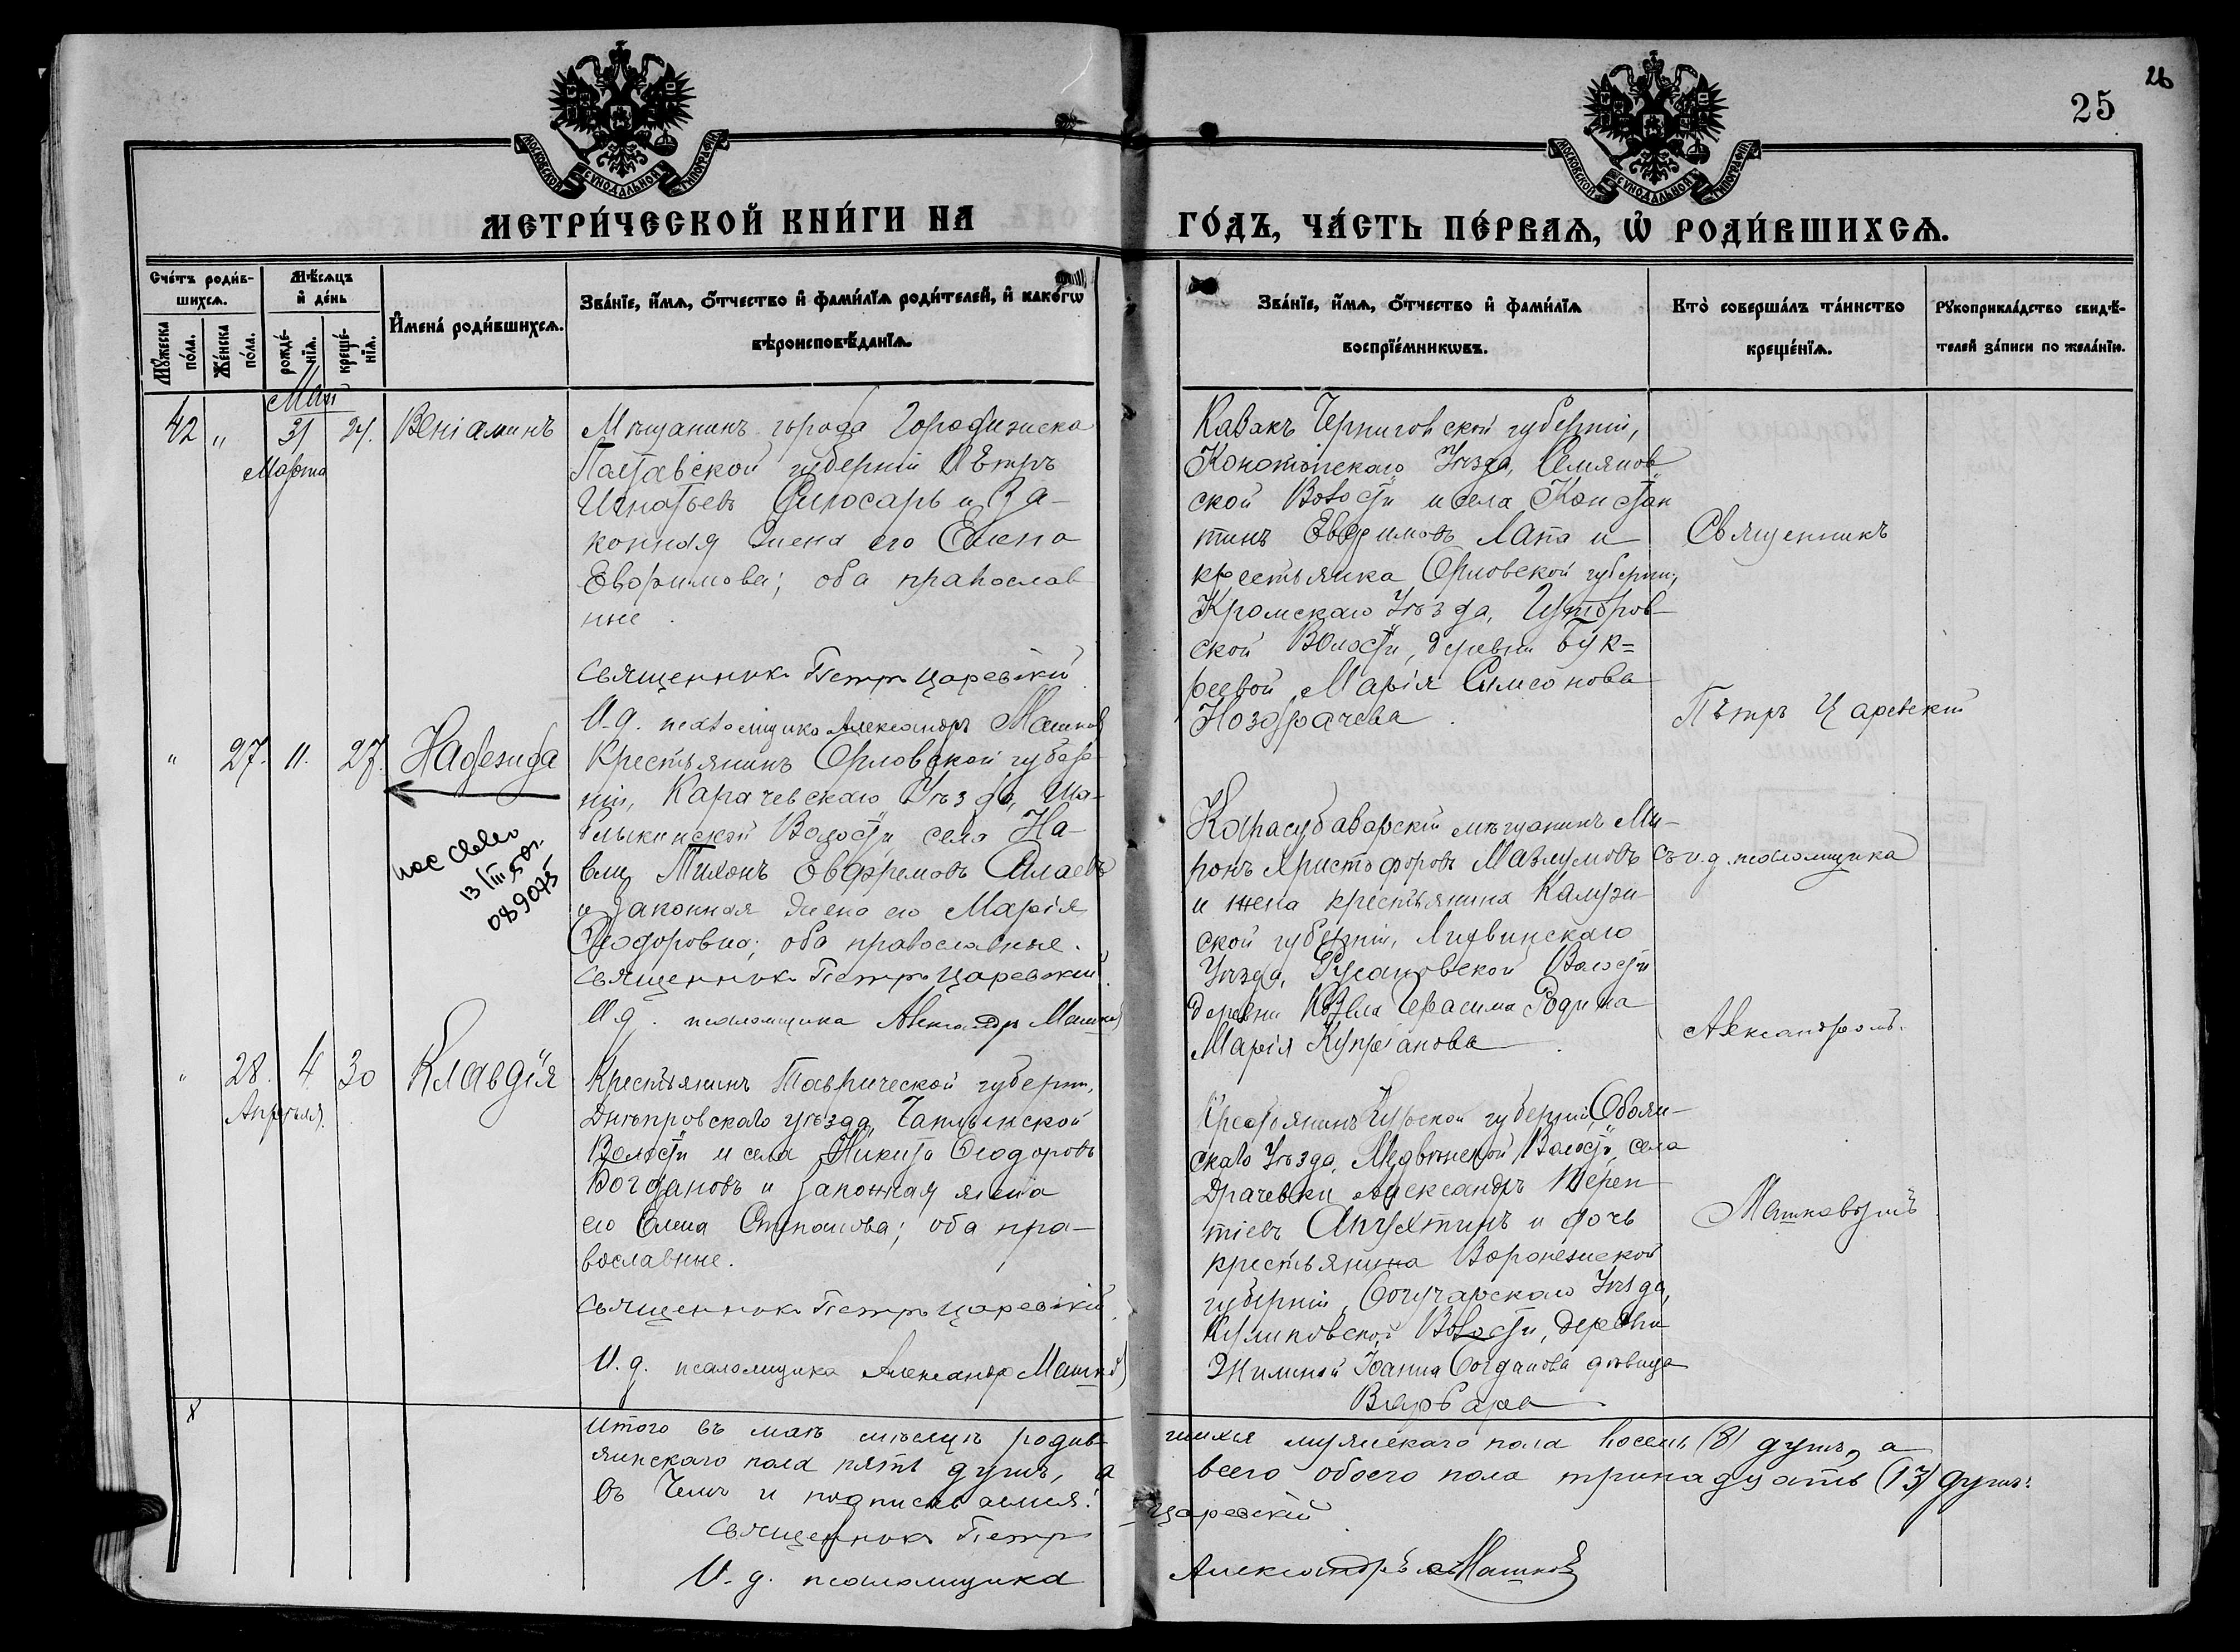 26
25
МОСКОВСКОЙ СѴНОДАЛЬНОЙ ТИПОГРАФІИ
МОСКОВСКОЙ СѴНОДАЛЬНОЙ ТИПОГРАФІИ
МЕТРИ́ЧЕСКОЙ КНИ́ГИ НА
ГО́ДЪ, ЧА́СТЬ ПЕ́РВАѦ, Ѡ҆ РОДИ́ВШИХСѦ.
Сче́тъ роди́в-
шихсѧ.
Мꙋ́жеска по́ла.
Же́нска по́ла.
Мѣ́сѧцъ
и҆ де́нь
рожде́-
нїѧ.
креще́-
нїѧ.
И҆мена̀ роди́вшихсѧ.
Зва́нїе, и҆́мѧ, ѻ҆́тчество и҆ фами́лїѧ роди́телей, и҆ како́гѡ
вѣроисповѣ́данїѧ.
Зва́нїе, и҆́мѧ, ѻ҆́тчество и҆ фами́лїѧ
воспрїе́мникѡвъ.
Кто̀ соверша́лъ та́инство
креще́нїѧ.
Рꙋкоприкла́дство свидѣ́-
телей за́писи по жела́нїю.
Май
42 " 31 27. Веніаминъ
Марта
Мѣщанинъ города Городижска
Палтавской губерніи Петръ
Игнатьевъ Слюсарь и За-
конная жена его Елена
Евфимова; оба православ
ные.
Священникъ Петръ Царевскій
И. д. псаломщика Александръ Машков
Казакъ Черниговской губерніи,
Конотопскаго Уѣзда,
ской Волости и села Констан
тинъ Евфимовъ Лапа и
крестьянка Орловской губерніи,
Кромскаго Уѣзда,
ской Волости, деревни Бук=
реевой Марія Симеонова
Ноздрачева.
Священникъ
Петръ Царевскій
" 27. 11. 27. Надежда
13/III 50г.
089075
Крестьянинъ Орловской губер-
ніи, Карачевскаго Уѣзда, Ша-
блыкинской Волости села На-
вли Тихонъ Евфремовъ
и Законная жена его Марія
Ѳеодоровна; оба православные.
Священникъ Петръ Царевскій.
И. д. псаломщика Александръ Машков
Карасубазарскій мѣщанинъ Ми-
ронъ Христофоровъ Мазлумовъ
и жена крестьянина Калуж-
ской губерніи, Лихвинскаго
Уѣзда, Русановской Волости
деревни Герасима Родина
Марія Купріанова.
съ и. д. псаломщика
Александромъ
" 28. 4 30 Клавдія
Апрѣля
Крестьянинъ Таврической губерніи,
Днѣпровскаго уѣзда, Чаплынской
Волости и села Никита Ѳеодоровъ
Богдановъ и законная жена
его Елена Степанова; оба пра-
вославные.
Священникъ Петръ Царевскій.
И. д. псаломщика Александръ Машков
Крестьянинъ Курской губерніи, Обоян-
скаго Уѣзда, Медвѣнской Волости, села
Драчевки Александръ Терен
тіевъ Апухтинъ и дочь
крестьянина Воронежской
губерніи, Богучарскаго Уѣзда,
Куликовской Волости, деревни
Жилиной Іоанна Богданова дѣвица
Варвара
Машковымъ
Итого въ маѣ мѣсяцѣ родив
шихся мужескаго пола восемь (8) душъ, а
женскаго пола пять душъ, а
всего обоего пола тринадцать (13) душъ:
Въ чемъ и подписываемся:
Священникъ Петръ
Царевскій
И. д. псаломщика
Александръ Машков